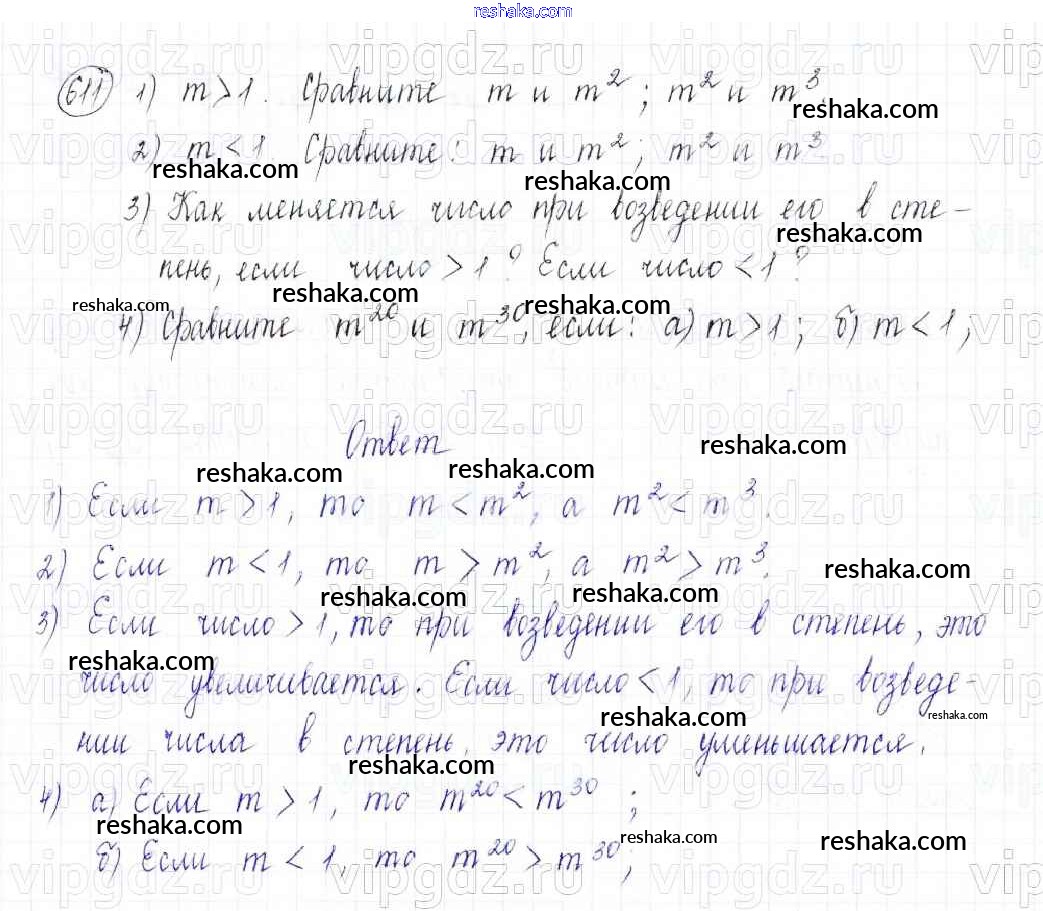 reshaka.com
611 1) m>1. Сравните m и m²; m² и m³.
reshaka.com
2) m<1 Сравните: m и m²; m² и m³
reshaka.com reshaka.com
3) Как меняется число при возведении его в сте-
reshaka.com
пень, если число >1? Если число <1?
reshaka.com reshaka.com reshaka.com
4) Сравните m²⁰ и m³⁰, если: а) m>1; б) m<1;
Ответ
reshaka.com reshaka.com reshaka.com
1) Если m>1, то m<m², а m²<m³.
2) Если m<1, то m>m², а m²>m³.
reshaka.com reshaka.com reshaka.com
3) Если число >1, то при возведении его в степень, это
reshaka.com
число увеличивается. Если число <1, то при возведе-
reshaka.com reshaka.com
нии числа в степень, это число уменьшается.
reshaka.com
4) а) Если m>1, то m²⁰<m³⁰;
reshaka.com reshaka.com reshaka.com
б) Если m<1, то m²⁰>m³⁰;
vipgdz.ru vipgdz.ru vipgdz.ru